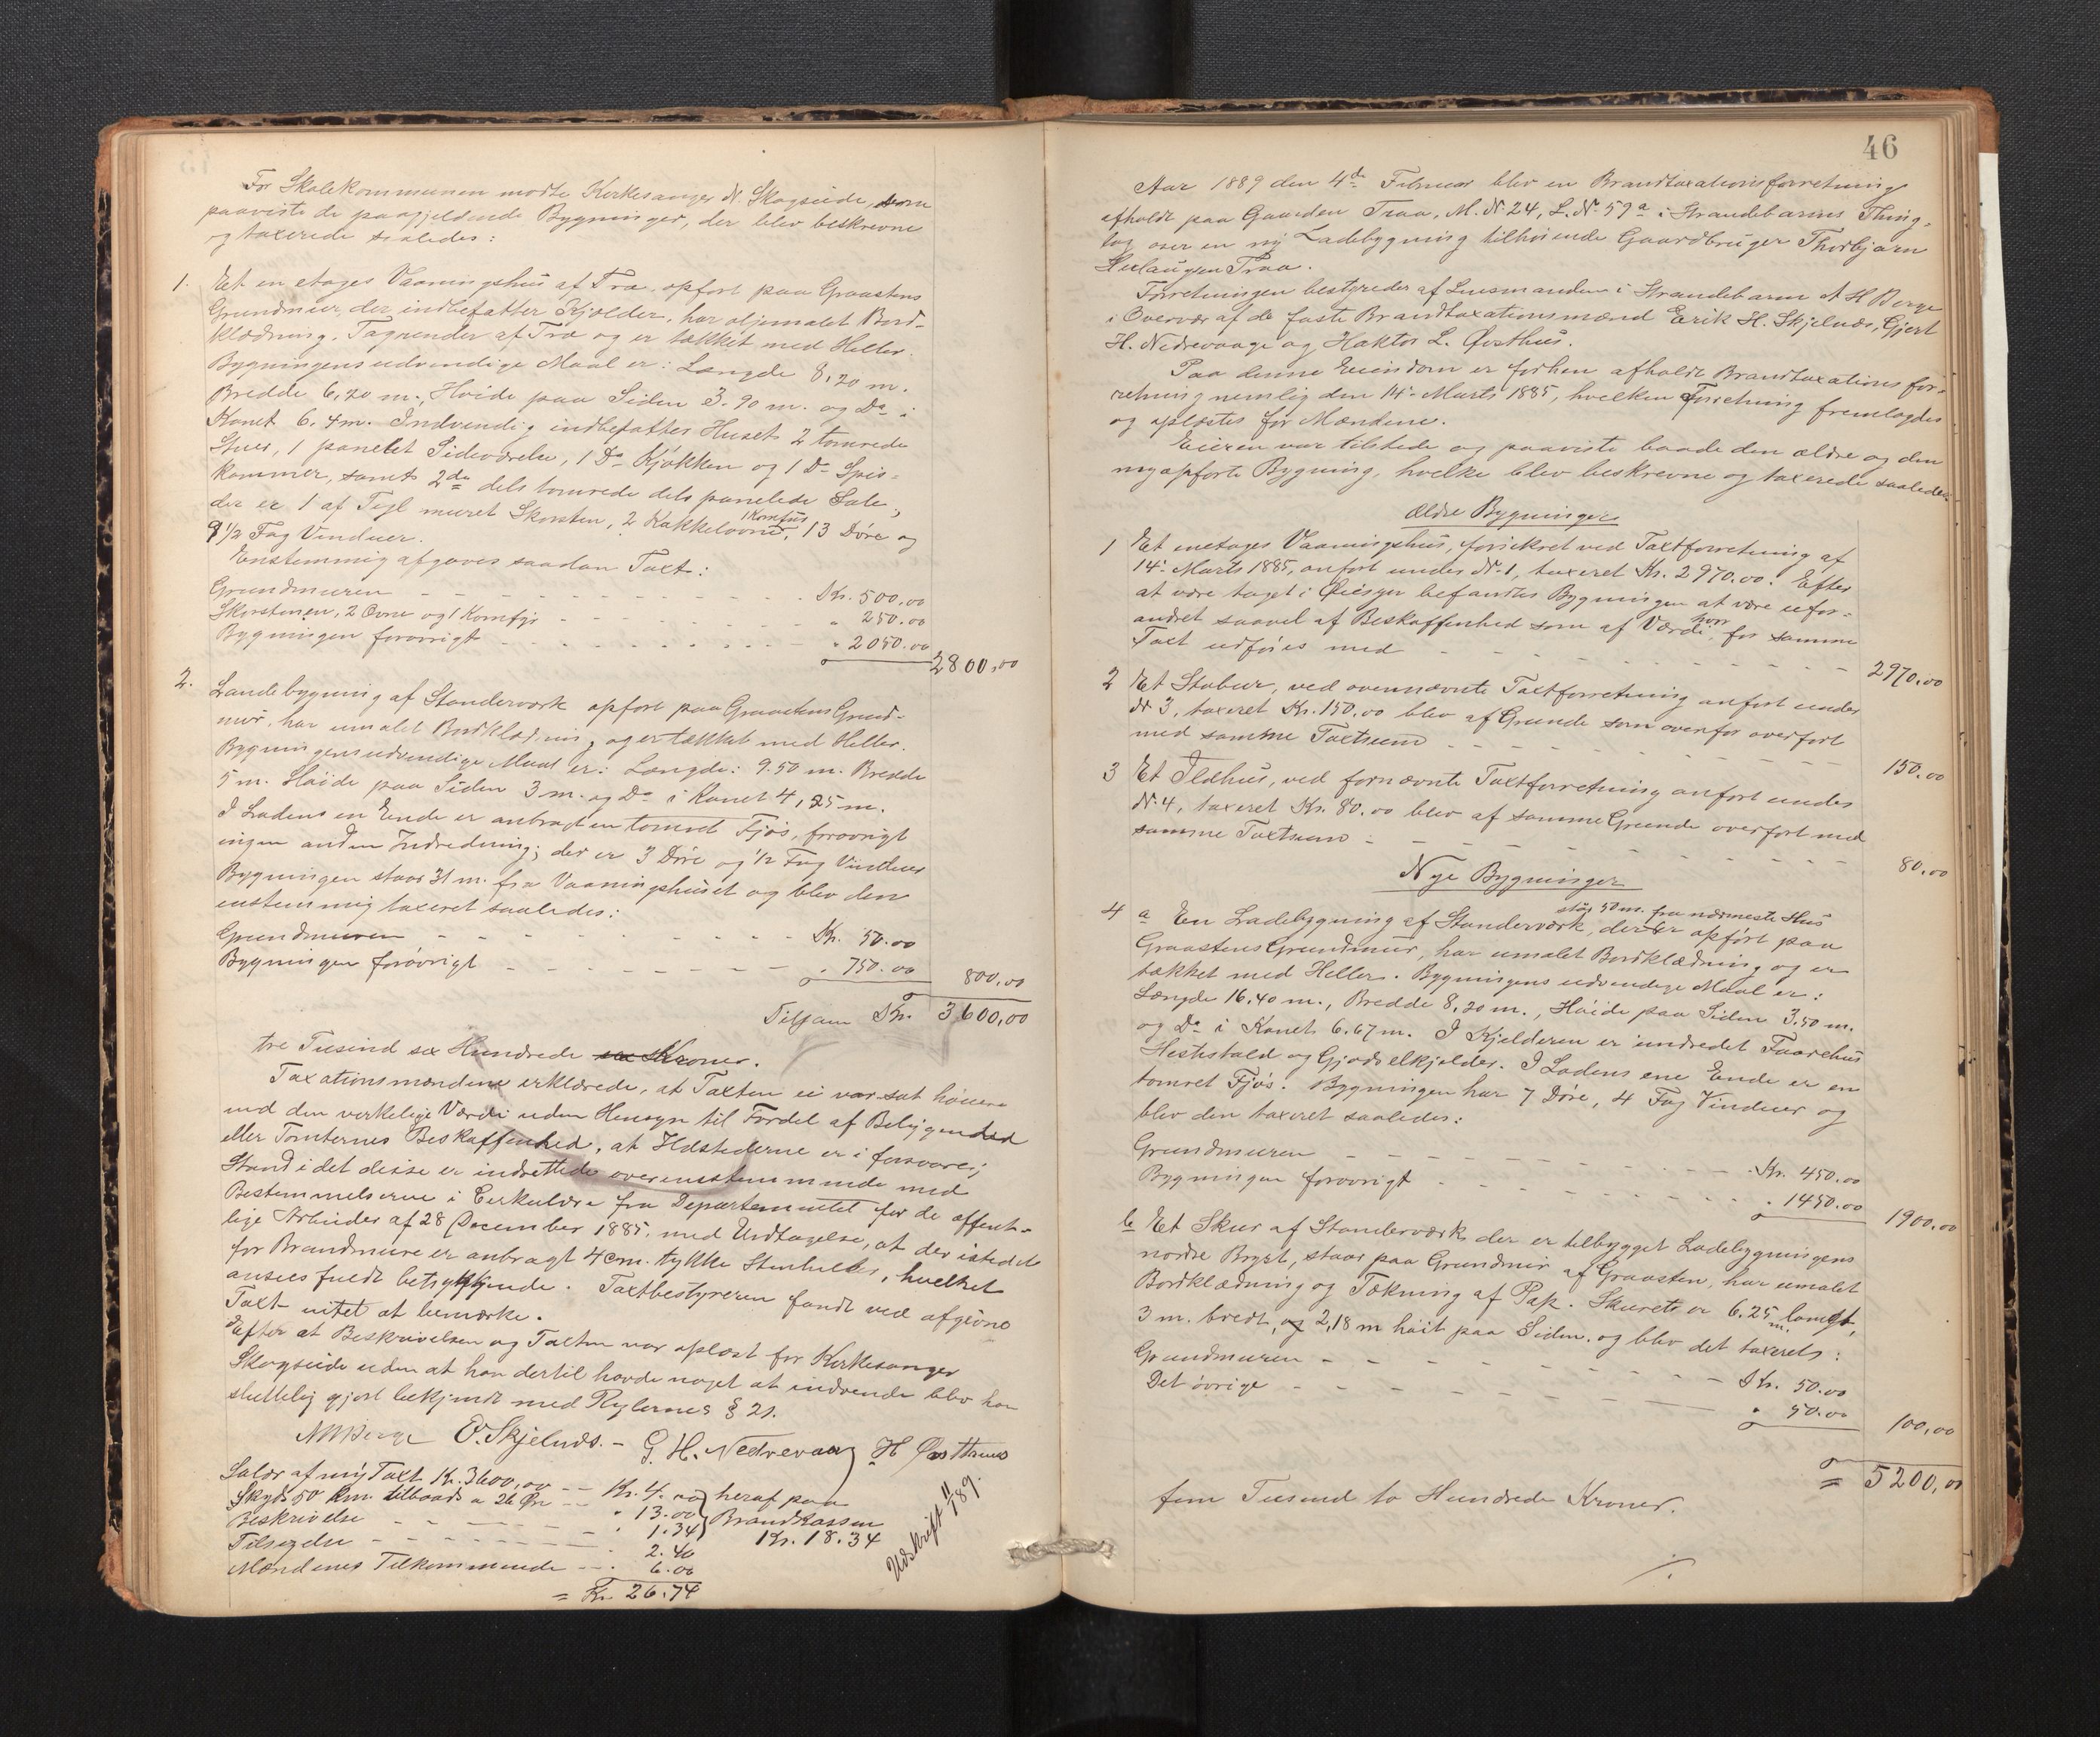 For Skolekommunen mødte Kirkesanger N. Skogseide, som
paaviste de paagjeldende Bygninger, der blev beskrevne
og taxerede saaledes:
1. Et en etages Vaaningshus af Træ, opført paa Graastens
Grundmur, der indbefatter Kjelder, har oljemalet Bord-
klædning, Tagrender af Træ og er tækket med Heller.
Bygningens udvendige Maal er: Længde 8,20 m.
Bredde 6,20 m., Høide paa Siden 3.90 m. og Do i
Rønet 6.4 m. Indvendig indbefatter Huset 2 tømrede
Stuer, 1 panelet Sideværelse, 1 Do Kjøkken og 1 Do Spis-
kammer, samt 2den dels tømrede dels panelede Sale,
der er 1 af Tegl muret Skorsten, 2 Kakkelovne, 1 Komfur, 13 Døre og
9 1/2 Fag Vinduer.
Enstemmig afgaves saadan Taxt:
Grundmuren - - - Kr. 500,00
Skorstenen, 2 Ovne og 1 Komfyr - - - " 250.00
Bygningen forøvrigt - - - " 2050.00
2800,00
2. Ladebygning af Standerværk opført paa Graastens Grund-
mur, har umalet Bordklædning og er tækket med Heller.
Bygningens udvendige Maal er: Længde: 9.50 m. Bredde
5 m. Høide paa Siden 3 m. og Do i Rønet 4,25 m.
I Ladens en Ende er anbragt en tømret Fjøs, forøvrigt
ingen anden Indredning; der er 3 Døre og 1/2 Fag Vinduer
Bygningen staar 31 m. fra Vaaningshuset og blev den
enstemmig taxeret saaledes:
Grundmuren - - - Kr. 50.00
Bygningen forøvrigt - - - " 750.00 800,00
Tilsam Kr. 3600,00
tre Tusind sex Hundrede Kroner.
Taxationsmændene erklærede, at Taxten ei var sat høiere
end den verkelige Værdi uden Hensyn til Fordel af Beliggenhed
eller Tomternes Beskaffenhed, at Ildstederne er i forsvarlig
Stand i det disse er indrettede overensstemmende med
Bestemmelserne i Cirkulære fra Departementet for de offent-
lige Arbeider af 28 December 1885, med Undtagelse, at der istedet
for Brandmure er anbragt 4 cm. tykke Stenheller, hvilket
ansees fuldt betryggende. Taxtbestyreren fandt ved afgivne
Taxt intet at bemærke.
Efter at Beskrivelsen og Taxten var oplæst for Kirkesanger
Skogseide uden at han dertil havde noget at indvende blev han
sluttelig gjort bekjendt med Reglernes § 21.
A H Berge E. Skjelnæs. - G. H. Nedrevaag H Østhuus
Salær af ny Taxt Kr. 3600,00 - - Kr. 4.00 heraf paa
Skyds 50 km. tilbaads a 26 Øre - - " 13.00 Brandkassen
Beskrivelse - - - " 1.34 Kr. 18.34
Tilsigelse - - - " 2.40
Mændenes Tilkommende - - - " 6.00
= Kr. 26.74
Udskrift 11/1 89.
46
Aar 1889 den 4de Februar blev en Brandtaxationsforretning
afholdt paa Gaarden Traa, M. No 24, L. No 59a i Strandebarms Thing-
lag over en ny Ladebygning tilhørende Gaardbruger Thorbjørn
Herlaugsen Traa.
Forretningen bestyredes af Lensmanden i Strandebarm A H Berge
i Overvær af de faste Brandtaxationsmænd Erik H. Skjelnæs, Gjert
H. Nedrevaage og Haktor L. Østhus.
Paa denne Eiendom er forhen afholdt Brandtaxationsfor-
retning nemlig den 14de Marts 1885, hvilken Forretning fremlagdes
og oplæstes for Mændene.
Eieren var tilstede og paaviste baade den ældre og den
nyopførte Bygning, hvilke blev beskrevne og taxerede saaledes:
Ældre Bygninger
1 Et enetages Vaaningshus, forsikret ved Taxtforretning af
14de Marts 1885, anført under No 1, taxeret Kr. 2970.00. Efter
at være taget i Øiesyn befandtes Bygningen at være ufor-
andret saavel af Beskaffenhed som af Værdi, hvorfor samme
Taxt udføres med - - - 2970,00
2 Et Stabur, ved ovennævnte Taxtforretning anført under
No 3, taxeret Kr. 150,00 blev af Grunde som ovenfor overført
med samme Taxtsum - - - 150,00
3 Et Ildhus, ved fornævnte Taxtforretning anført under
No 4, taxeret Kr. 80.00 blev af samme Grunde overført med
samme Taxtsum: - - - 80,00
Nye Bygninger
4 a En Ladebygning af Standerværk, der står 50 m. fra nærmeste Hus er opført paa
Graastens Grundmur, har umalet Bordklædning og er
tækket med Heller. Bygningens udvendige Maal er:
Længde 16.40 m., Bredde 8,20 m., Høide paa Siden 3.50 m.
og Do i Rønet 6.67 m. I Kjelderen er indredet Faarehus
Hestestald og Gjødselkjelder. I Ladens ene Ende er en
tømret Fjøs. Bygningen har 7 Døre, 4 Fag Vinduer og
blev den taxeret saaledes:
Grundmuren - - - Kr. 450.00
Bygningen forøvrigt - - - " 1450.00 1900,00
b Et Skur af Standerværk, der er tilbygget Ladebygningens
nordre Bryst, staar paa Grundmur af Graasten, har umalet
Bordklædning og Tækning af Pap. Skuret er 6.25 m. langt,
3 m. bredt, og 2,18 m høit paa Siden, og blev det taxeret:
Grundmuren - - - Kr. 50.00
Det øvrige - - - " 50.00 100,00
= 5200,00
fem Tusend to Hundrede Kroner.